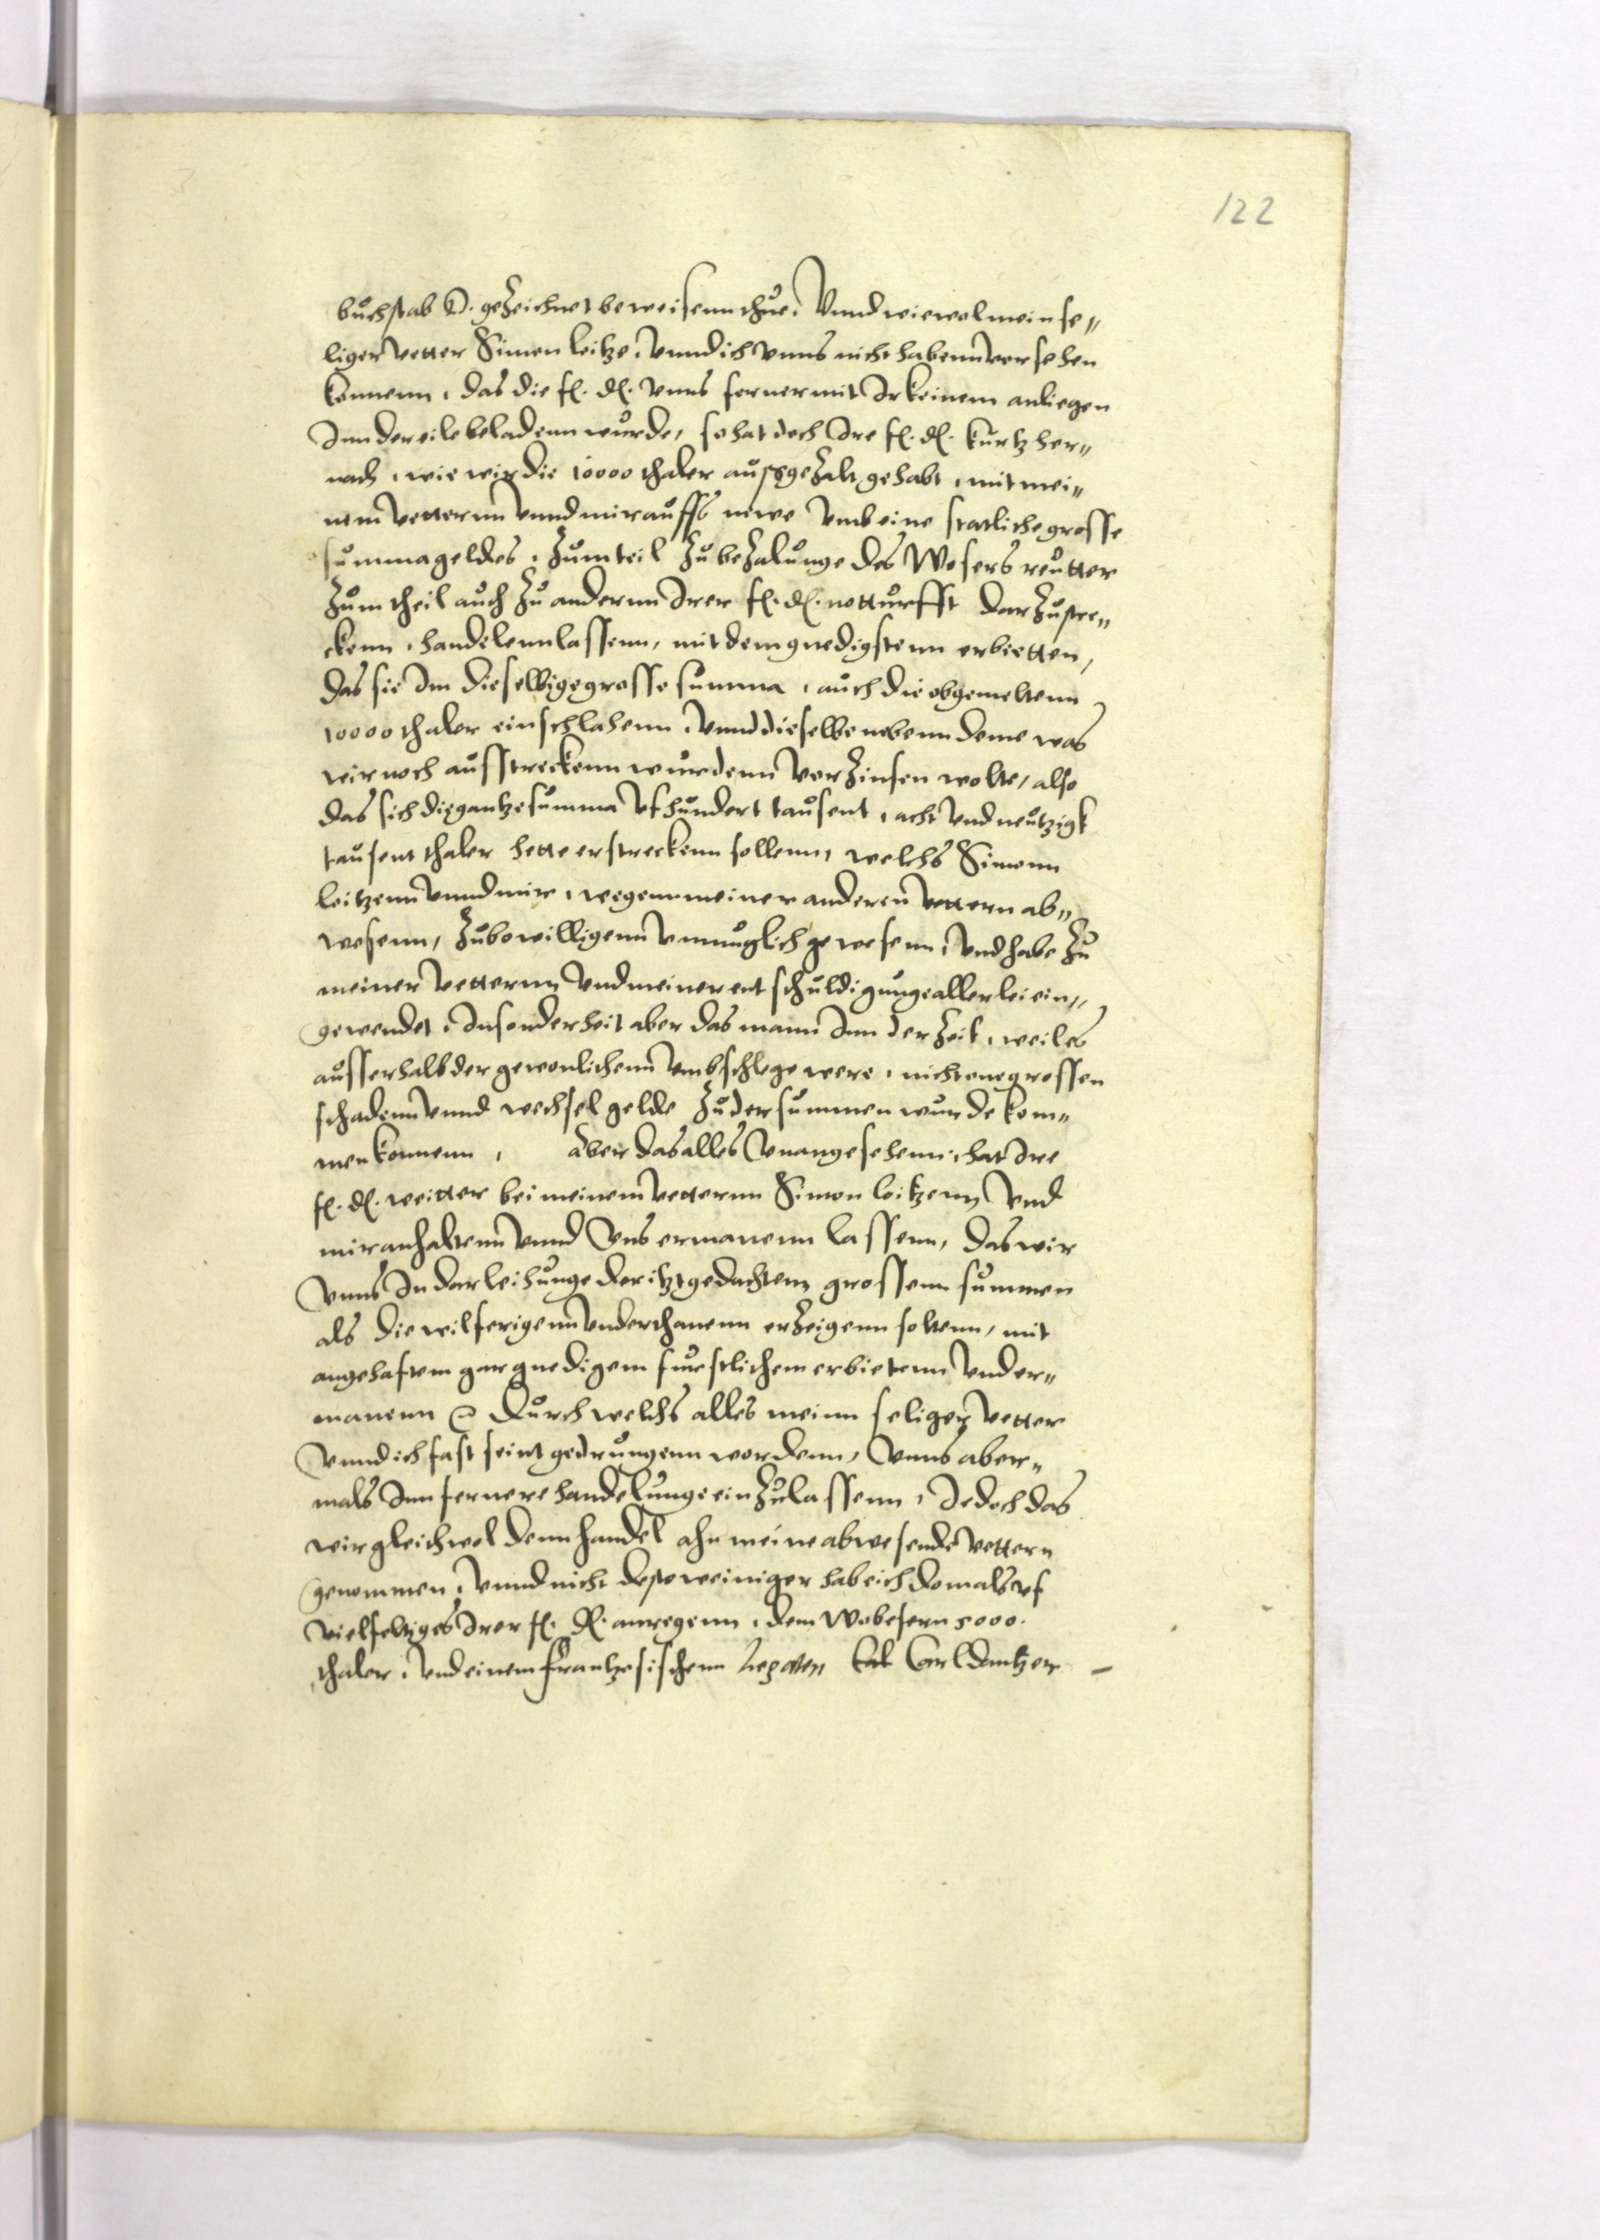 122
buchstab D. gezeichnet beweisenn thue. Vnnd wiewol mein se„
liger vetter Simon leitze, vnnd ich vnns nicht habenn versehen
konnenn, das die f. d. vnns ferner mit Irkeinem anliegen
Inn der eile beladenn wurde, so hat doch Ire f. d. kurtz her„
nach, wie wir die 10000 thaler aussgezalt gehabt, mit mei„
nem vetternn vnnd mir auffs newe vmb eine statliche grosse
summa geldes, zum teil zu bezalunge des Wesers reutter
zum theil auch zu anderun Irer f. d. notturfft darzustre„
ckenn, handelenn lassenn, mit dem gnedigstenn erbietten,
das sie Inn dieselbige grosse summa, auch die obgemeltenn
10000 thaler einschlahenn, vnnd dieselbe nebenn deme was
wir noch ausstreckenn wurdenn verzinsen wolte, also
das sich die gantze summa vf hundert tausent, acht vnd neutzigk
tausent thaler hette erstreckenn sollenn, welchs Simonn
leitzenn vnnd mir, wegenn meiner anderen vettern ab„
wesenn, zubewilligenn vnmuglich gewesenn, vnd habe zu
meiner vetternn vnd meiner entschuldigunge allerlei ein„
gewendet, Insonderheit aber das mann Inn der zeit, weil es
ausserhalb der gewonlichenn vmbschlege were, nicht one grossen
schadenn vnnd wechselgelde zu der summen wurde kom„
men konnenn, aber das alles vnangesehenn, hat Ire
f. d. weitter bei meinem vetternn Simon leitzenn vnd
mir anhaltenn vnnd vns ermanenn lassenn, das wir
vnns In darleihunge der itztgedachtenn grossenn summen
als die wilferigenn vnderthanenn erzeigenn soltenn, mit
angehafftem gar gnedigem furstlichem erbietenn vnd er„
manenn Durch welchs alles meinn seliger vetter
vnnd ich fast seint gedrungenn wordenn, vnns aber„
mals Inn fernere handelunge einzulassenn, Jedoch das
wir gleichwol denn handel ahn meine abwesende vettern
genommen, vnnd nicht desteweiniger hab ich domals vf
vielfeltiges Irer f. d. anregenn, dem Wobesern 5000.
thaler, vnd einem frantzosischenn Legaten Carl Dantzer